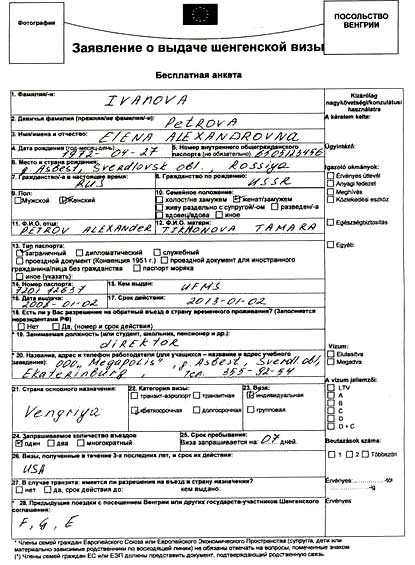 Фотография
ПОСОЛЬСТВО
ВЕНГРИИ
Заявление о выдаче шенгенской визы
Бесплатная анкета
1. Фамилия/-и:
IVANOVA
2. Девичья фамилия (прежняя/ие фамилия/-и):
PETROVA
3. Имя/имена и отчество:
ELENA ALEXANDROVNA
4. Дата рождения (год-месяц-день)
1972-04-27
5. Номер внутреннего общегражданского паспорта (не обязательно)
8. Место и страна рождения:
g. Asbest, Sverdlovsk obl., Rossiya
7. Гражданство/-а в настоящее время:
RUS
8. Гражданство по рождению:
USSR
9. Пол:
Мужской Женский
10. Семейное положение:
холост/не замужем женат/замужем
живу раздельно с супругой/-ом разведен/-а
вдовец/вдова иное
11. Ф.И.О. отца:
PETROV ALEXANDER
12. Ф.И.О. матери:
TIKHONOVA TAMARA
13. Тип паспорта:
заграничный дипломатический служебный
проездной документ (Конвенция 1951 г.) проездной документ для иностранного
гражданина/лица без гражданства паспорт моряка
иное (указать)
14. Номер паспорта:
15. Кем выдан:
UFMS
16. Дата выдачи:
2008-01-02
17. Срок действия:
2013-01-02
18. Есть ли у Вас разрешение на обратный въезд в страну временного проживания? (Заполняется
нерезидентами РФ)
Нет Да, (номер и срок действия)
* 19. Занимаемая должность (или студент, школьник, пенсионер и др.):
direktor
* 20. Название, адрес и телефон работодателя (для учащихся – название и адрес учебного
заведения):
OOO "Megapolis", g. Asbest, Sverdl. obl,
Ekaterinburg, тел. 355-92-54
21. Страна основного назначения:
Vengriya
22. Категория визы:
транзит-аэропорт транзитная
краткосрочная долгосрочная
23. Виза:
индивидуальная
групповая
24. Запрашиваемое количество въездов
один два многократный
25. Срок пребывания:
Виза запрашивается на: 07 дней.
26. Визы, полученные в течение 3-х последних лет, и срок их действия:
USA
27. В случае транзита: имеется ли разрешения на въезд в страну назначения?
нет да, срок действия до: кем выдано:
* 28. Предыдущие поездки с посещением Венгрии или других государств-участников Шенгенского
соглашения:
F, G, E
* Члены семей граждан Европейского Союза или Европейского Экономического Пространства (супруга, дети или
материально зависимые родственники по восходящей линии) не обязаны отмечать на вопросы, помеченные знаком
(*) Члены семей граждан ЕС или ЕЭП должны представить документ, подтверждающий родственную связь.
Kizárólag
nagykövetségi/konzulátusi
használatra
A kérelem kelte:
Ügyintéző:
Igazoló okmányok:
Érvényes útlevél
Anyagi fedezet
Meghívás
Közlekedési eszköz
Egészségbiztosítás
Egyéb:
Vízum:
Elutasítva
Megadva
A vízum jellemzői:
LTV
A
B
C
D
D + C
Beutazások száma:
1 2 Többszöri
Érvényes: -tól
-ig
Érvényes